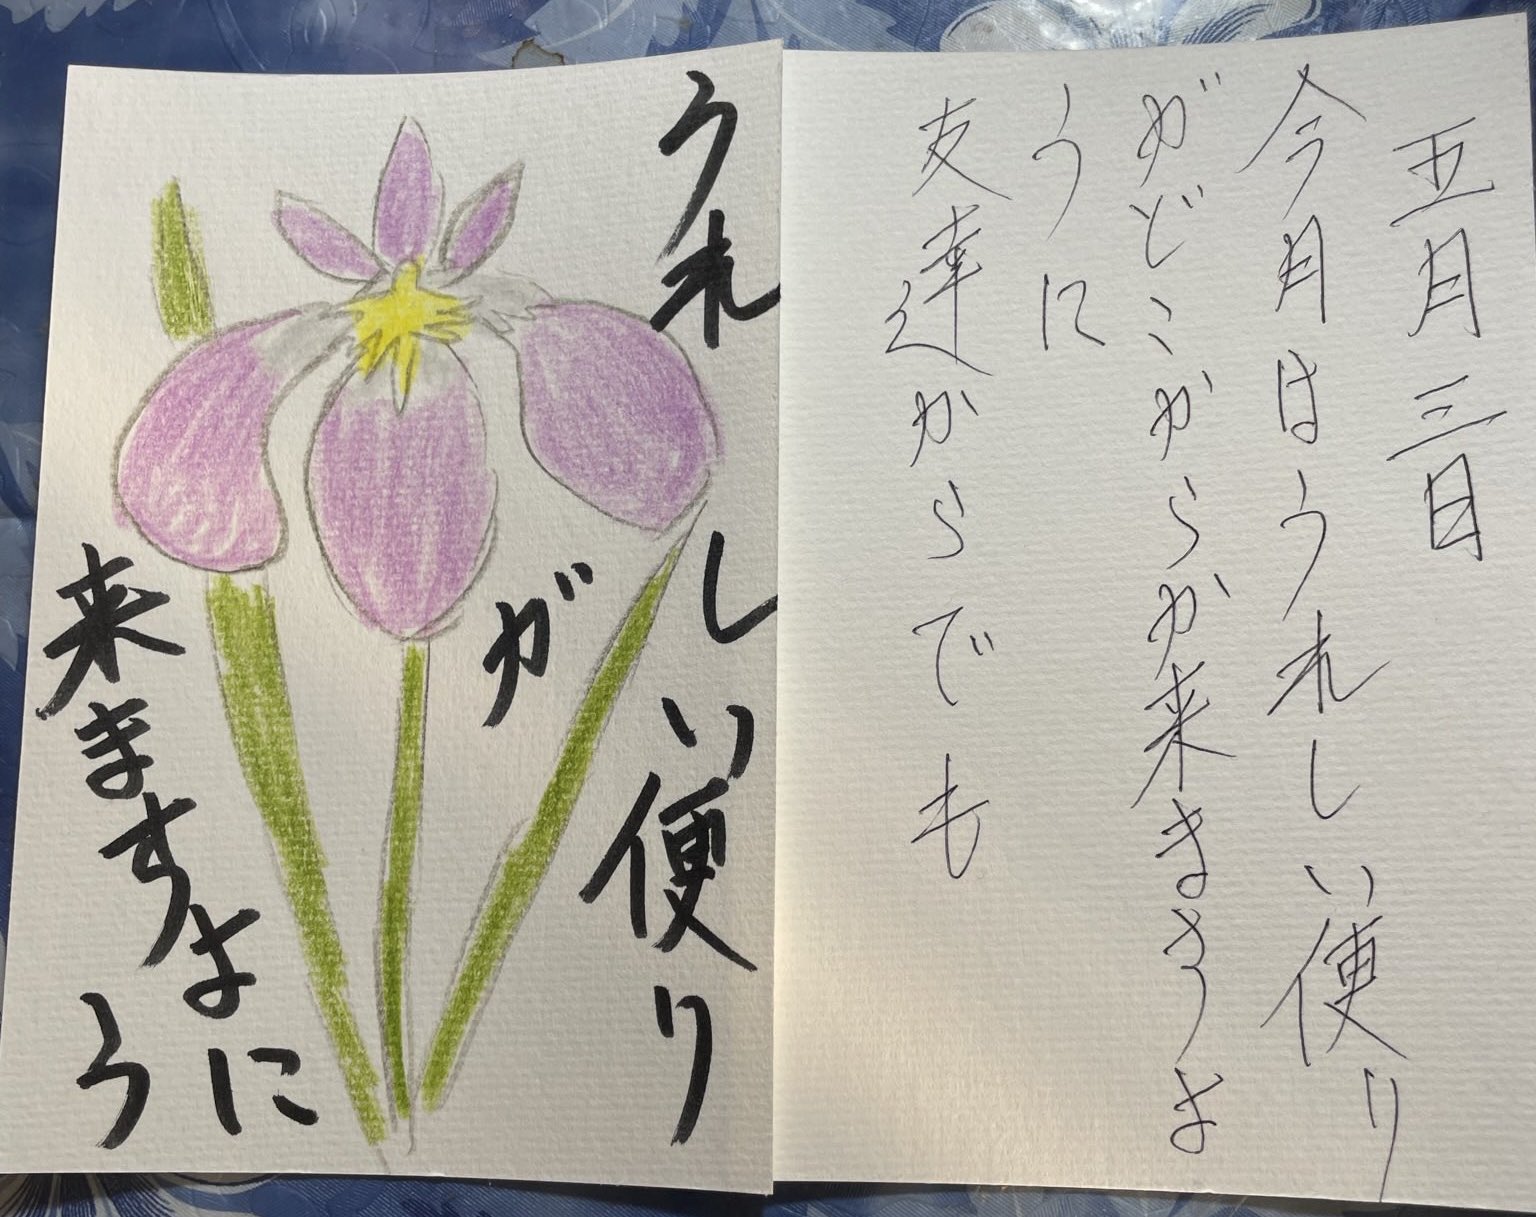 五月三日
今月はうれしい便り
がどこからか来ますよ
うに
友達からでも
うれしい便り
が
来ますように